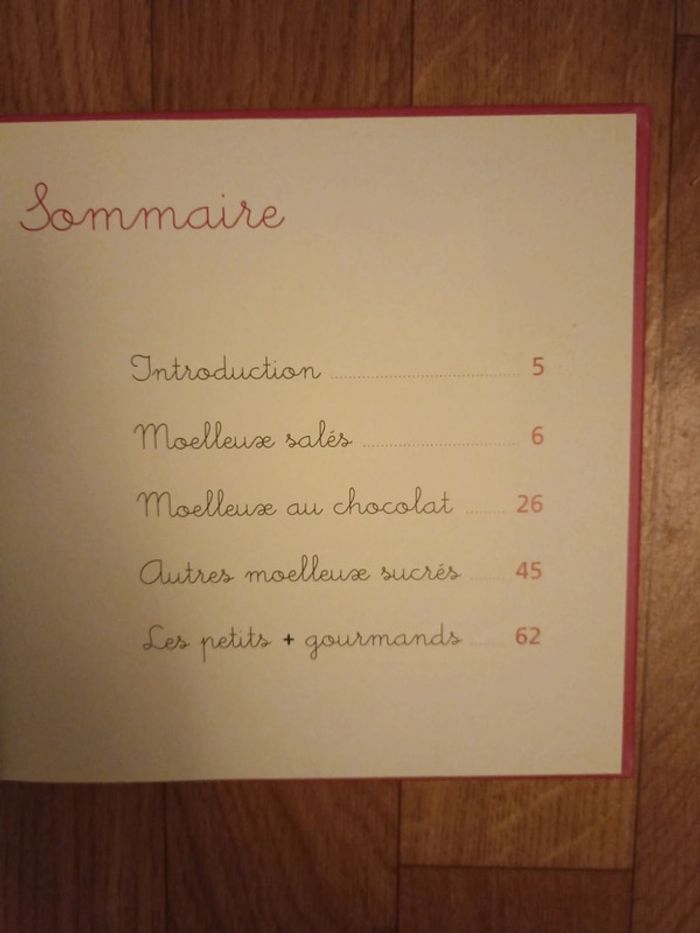 Sommaire
Introduction ........ 5
Moelleux salés ........ 6
Moelleux au chocolat ........ 26
Autres moelleux sucrés ........ 45
Les petits + gourmands ........ 62